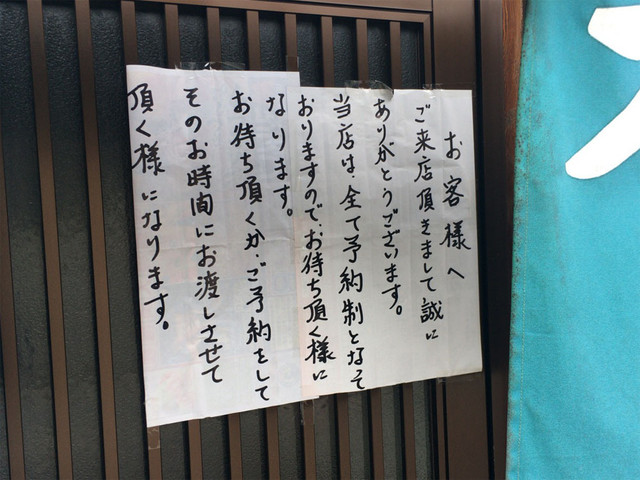 お客様へ
ご来店頂きまして誠に
ありがとうございます。
当店は、全て予約制となって
おりますので、お待ち頂く様に
なります。
お待ち頂くか、ご予約をして
そのお時間にお渡しさせて
頂く様になります。